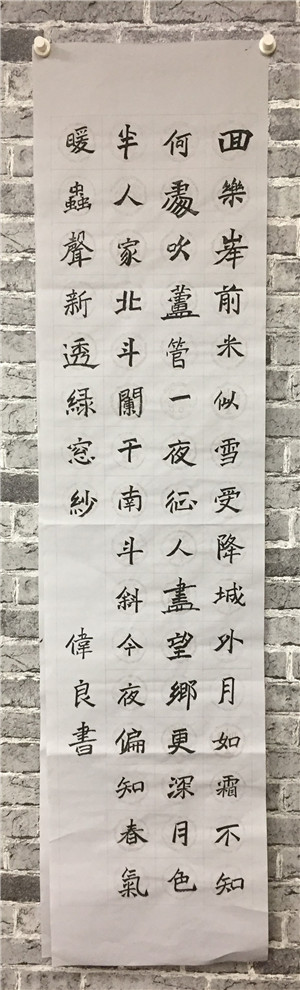 回樂峯前米似雪受降城外月如霜不知
何處吹蘆管一夜征人盡望鄉更深月色
半人家北斗闌干南斗斜今夜偏知春氣
暖蟲聲新透綠窓紗 偉良書